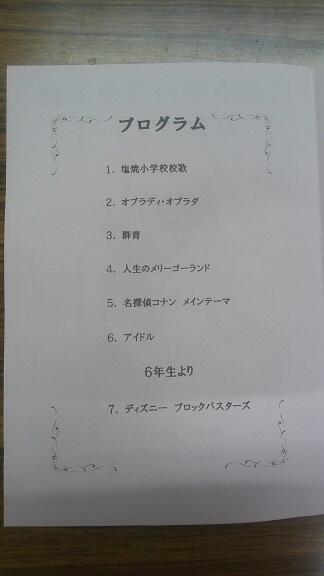 プログラム
1. 塩焼小学校校歌
2. オブラディ・オブラダ
3. 群青
4. 人生のメリーゴーランド
5. 名探偵コナン メインテーマ
6. アイドル
6年生より
7. ディズニー ブロックバスターズ